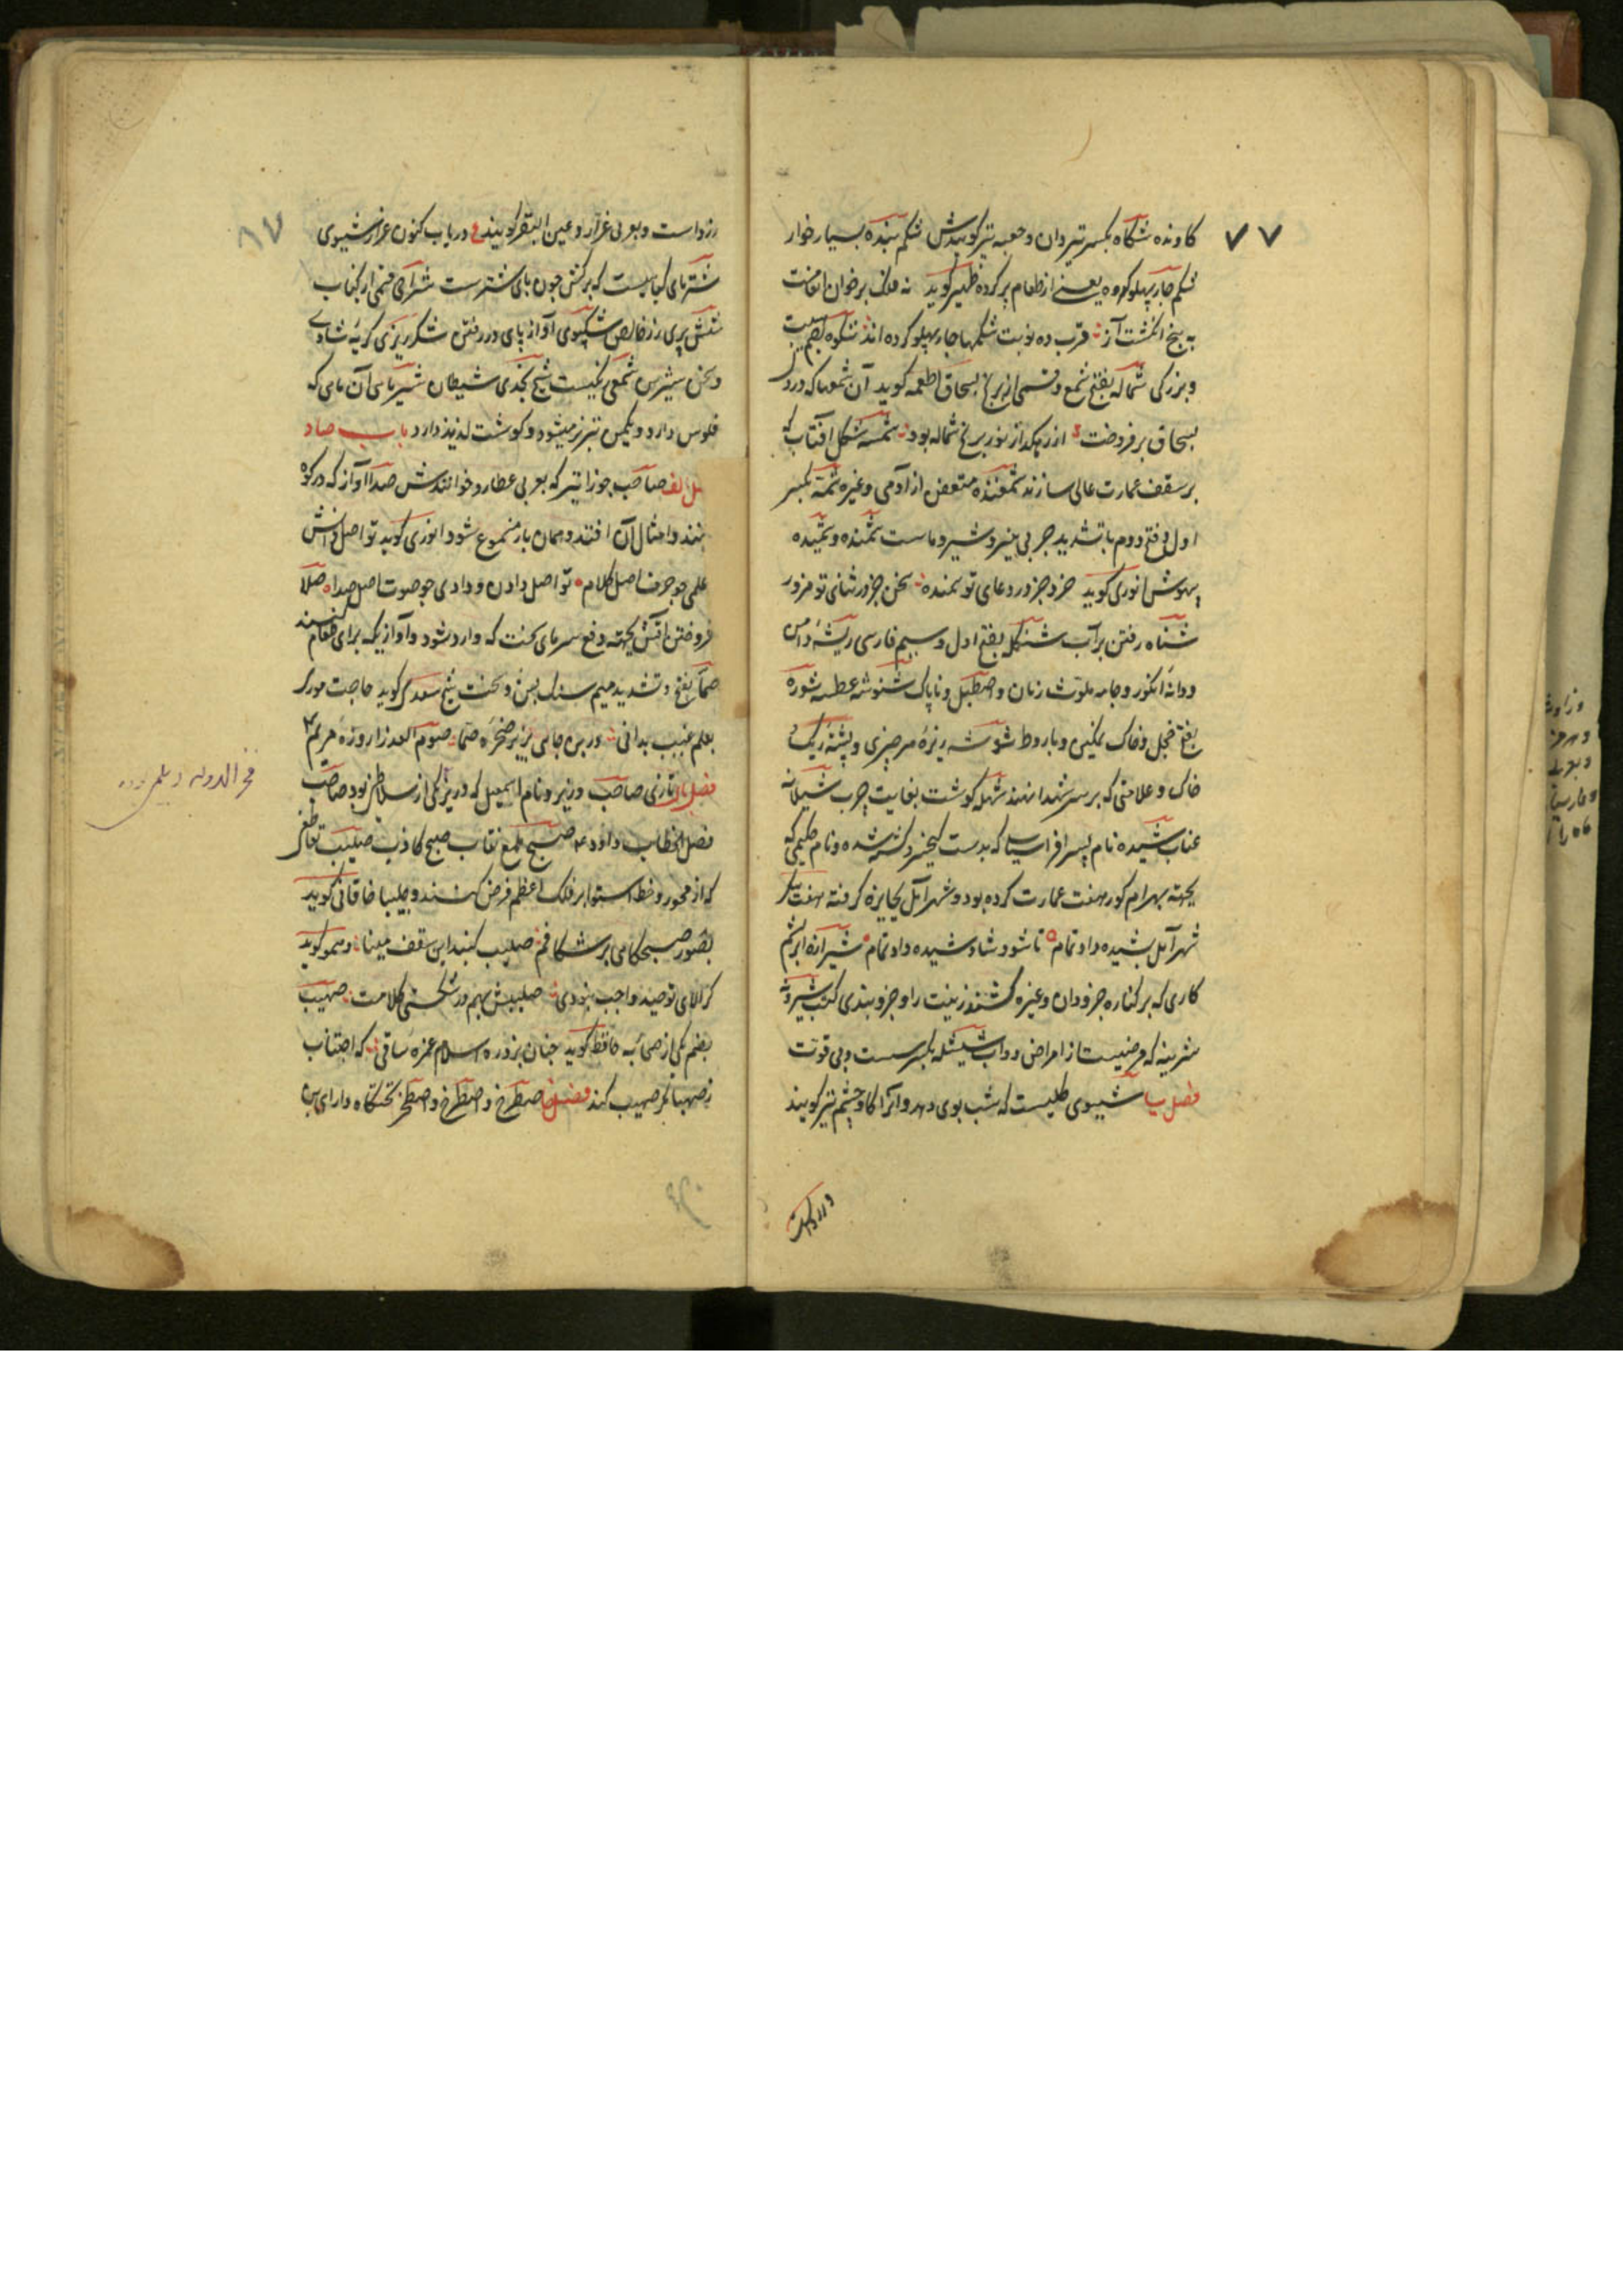 ۷۷
کاونده شکاه بکسر تیردان و جعبه تیر کویندش شکم بنده بسیار خوار
شکم چار پهلو کرده یعنی از طعام پر کرده ظهیر کوید نه فلک بر خوان
به پنج انکشت آز قرب ده نوبت شکمها چار پهلو کرده اند شکوه بضم هیبت
و بزرکی شماله بفتح شمع و قسمی از برنج بسحاق اطعمه کوید آن شمعها که در
بسحاق بر فروخت از رهکذار نور برنج شماله بود شمسه شکل افتاب که
بر سقف عمارت عالی سازند شمغنده متعفن از آدمی و غیره شمه بکسر
اول و فتح دوم با تشدید چربی پنیر و شیر و ماست شمنده و شمیده
بیهوش انوری کوید خرد جزو در دعای تو شمنده سخن جزو در ثنای تو مزور
شناه رفتن بر آب شنکله بفتح اول و سیم فارسی ریشه دامن
و دانه انکور و جامه ملوث زنان و اصطبل و ناپاک شنوشه عطسه شوره
بفتح خجل و خاک نمکین و باروط شوشه ریزه هر چیزی و پشته ریک
خاک و علامتی که بر سر شهدا نهند شهله کوشت بغایت چرب شیلانه
عناب شیده نام پسر افراسیاب که بدست کیخسرو کشته شده و نام حکیمی که
بجهته بهرام کور هفت عمارت کرده بود و شهر آمل بجایزه کرفته هفت پیکر
شهر آمل بشیده داد تمام تا شود شاد شیده داد تمام شیرازه ابریشم
کاری که بر کناره جزودان و غیره کشند زینت را و جزو بندی کتب شیرونه
شرینه که مرضیست از امراض دواب شیشله بکسر سست و بی قوت
فصل یا شیبوی کلیست که شب بوی دهد و آنرا کاوچشم نیز کویند
زرد است و بعربی عرار و عین البقر کویند در باب کنون عرار شیبوی
شترپای کیاهیست که برکش چون پای شترست شراحی قسمی از کباب
شش پری زر خالص شکپوی آواز پای در رفتن شکرریزی کریه شادی
و سخن شیرین شمعی شیخ نجدی شیطان شیرماهی آن ماهی که
فلوس دارد و بکمس نیز میشود و کوشت لذیذ دارد باب صاد
فصل الف صاحب جوزا تیر که بعربی عطارد خوانندش صدا آواز که در کوه
کنند و امثال آن افتد و همان باز مسموع شود انوری کوید تو اصل دانش
علمی چو حرف اصل کلام تو اصل دادن و دادی چو صوت اصل صدا صلا
فروختن آتش بجهته دفع سرمای سخت که وارد شود و آوازیکه برای طعام کنند
صما بفتح و تشدید میم سنک پهن و سخت شیخ سعدی کوید حاجت موری
بعلم غیب بدانی در بن چاهی بزیر صخره صما صوم العذرا روزه مریم
فصل با تازی صاحب وزیر و نام اسمعیل که وزیر یکی از سلاطین بود صاحب
فصل الخطاب داود صبح ملمع نقاب صبح کاذب صلیب تقاطعی
که از محور و خط استوا بر فلک اعظم فرض کنند و چلیپا خاقانی کوید
بصور صبحکاهی بر شکافم صلیب کنبد این سقف مینا و همو کوید
کر لای توحید واجب نبودی صلیبش بهم در شکستی کلامت صهیب
بضم یکی از صحابه حافظ کوید چنان بزد ره اسلام غمزه ساقی که اجتناب
ز صهبا مکر صهیب کند فصل خا صطرخ و اصطرخ و اصطخر تختکاه دارای بن
فخر الدوله دیلمی بوده